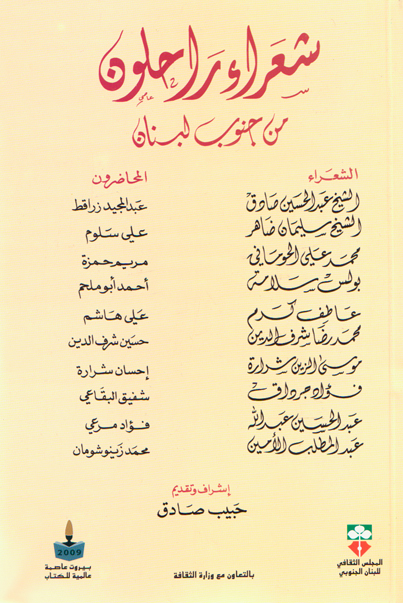 شعراء راحلون
من جنوب لبنان
الشعراء
المحاضرون
الشيخ عبد الحسين صادق
عبد المجيد زراقط
الشيخ سليمان ضاهر
علي سلوم
محمد علي الحوماني
مريم حمزة
بولس سلامة
أحمد أبو ملحم
عاطف كرم
علي هاشم
محمد رضا شرف الدين
حسين شرف الدين
موسى الزين شرارة
إحسان شرارة
فؤاد جرداق
شفيق البقاعي
عبد الحسين عبد الله
فؤاد مرعي
عبد المطلب الأمين
محمد زينو شومان
إشراف وتقديم
حبيب صادق
المجلس الثقافي
للبنان الجنوبي
بالتعاون مع وزارة الثقافة
2009
بيروت عاصمة
عالمية للكتاب